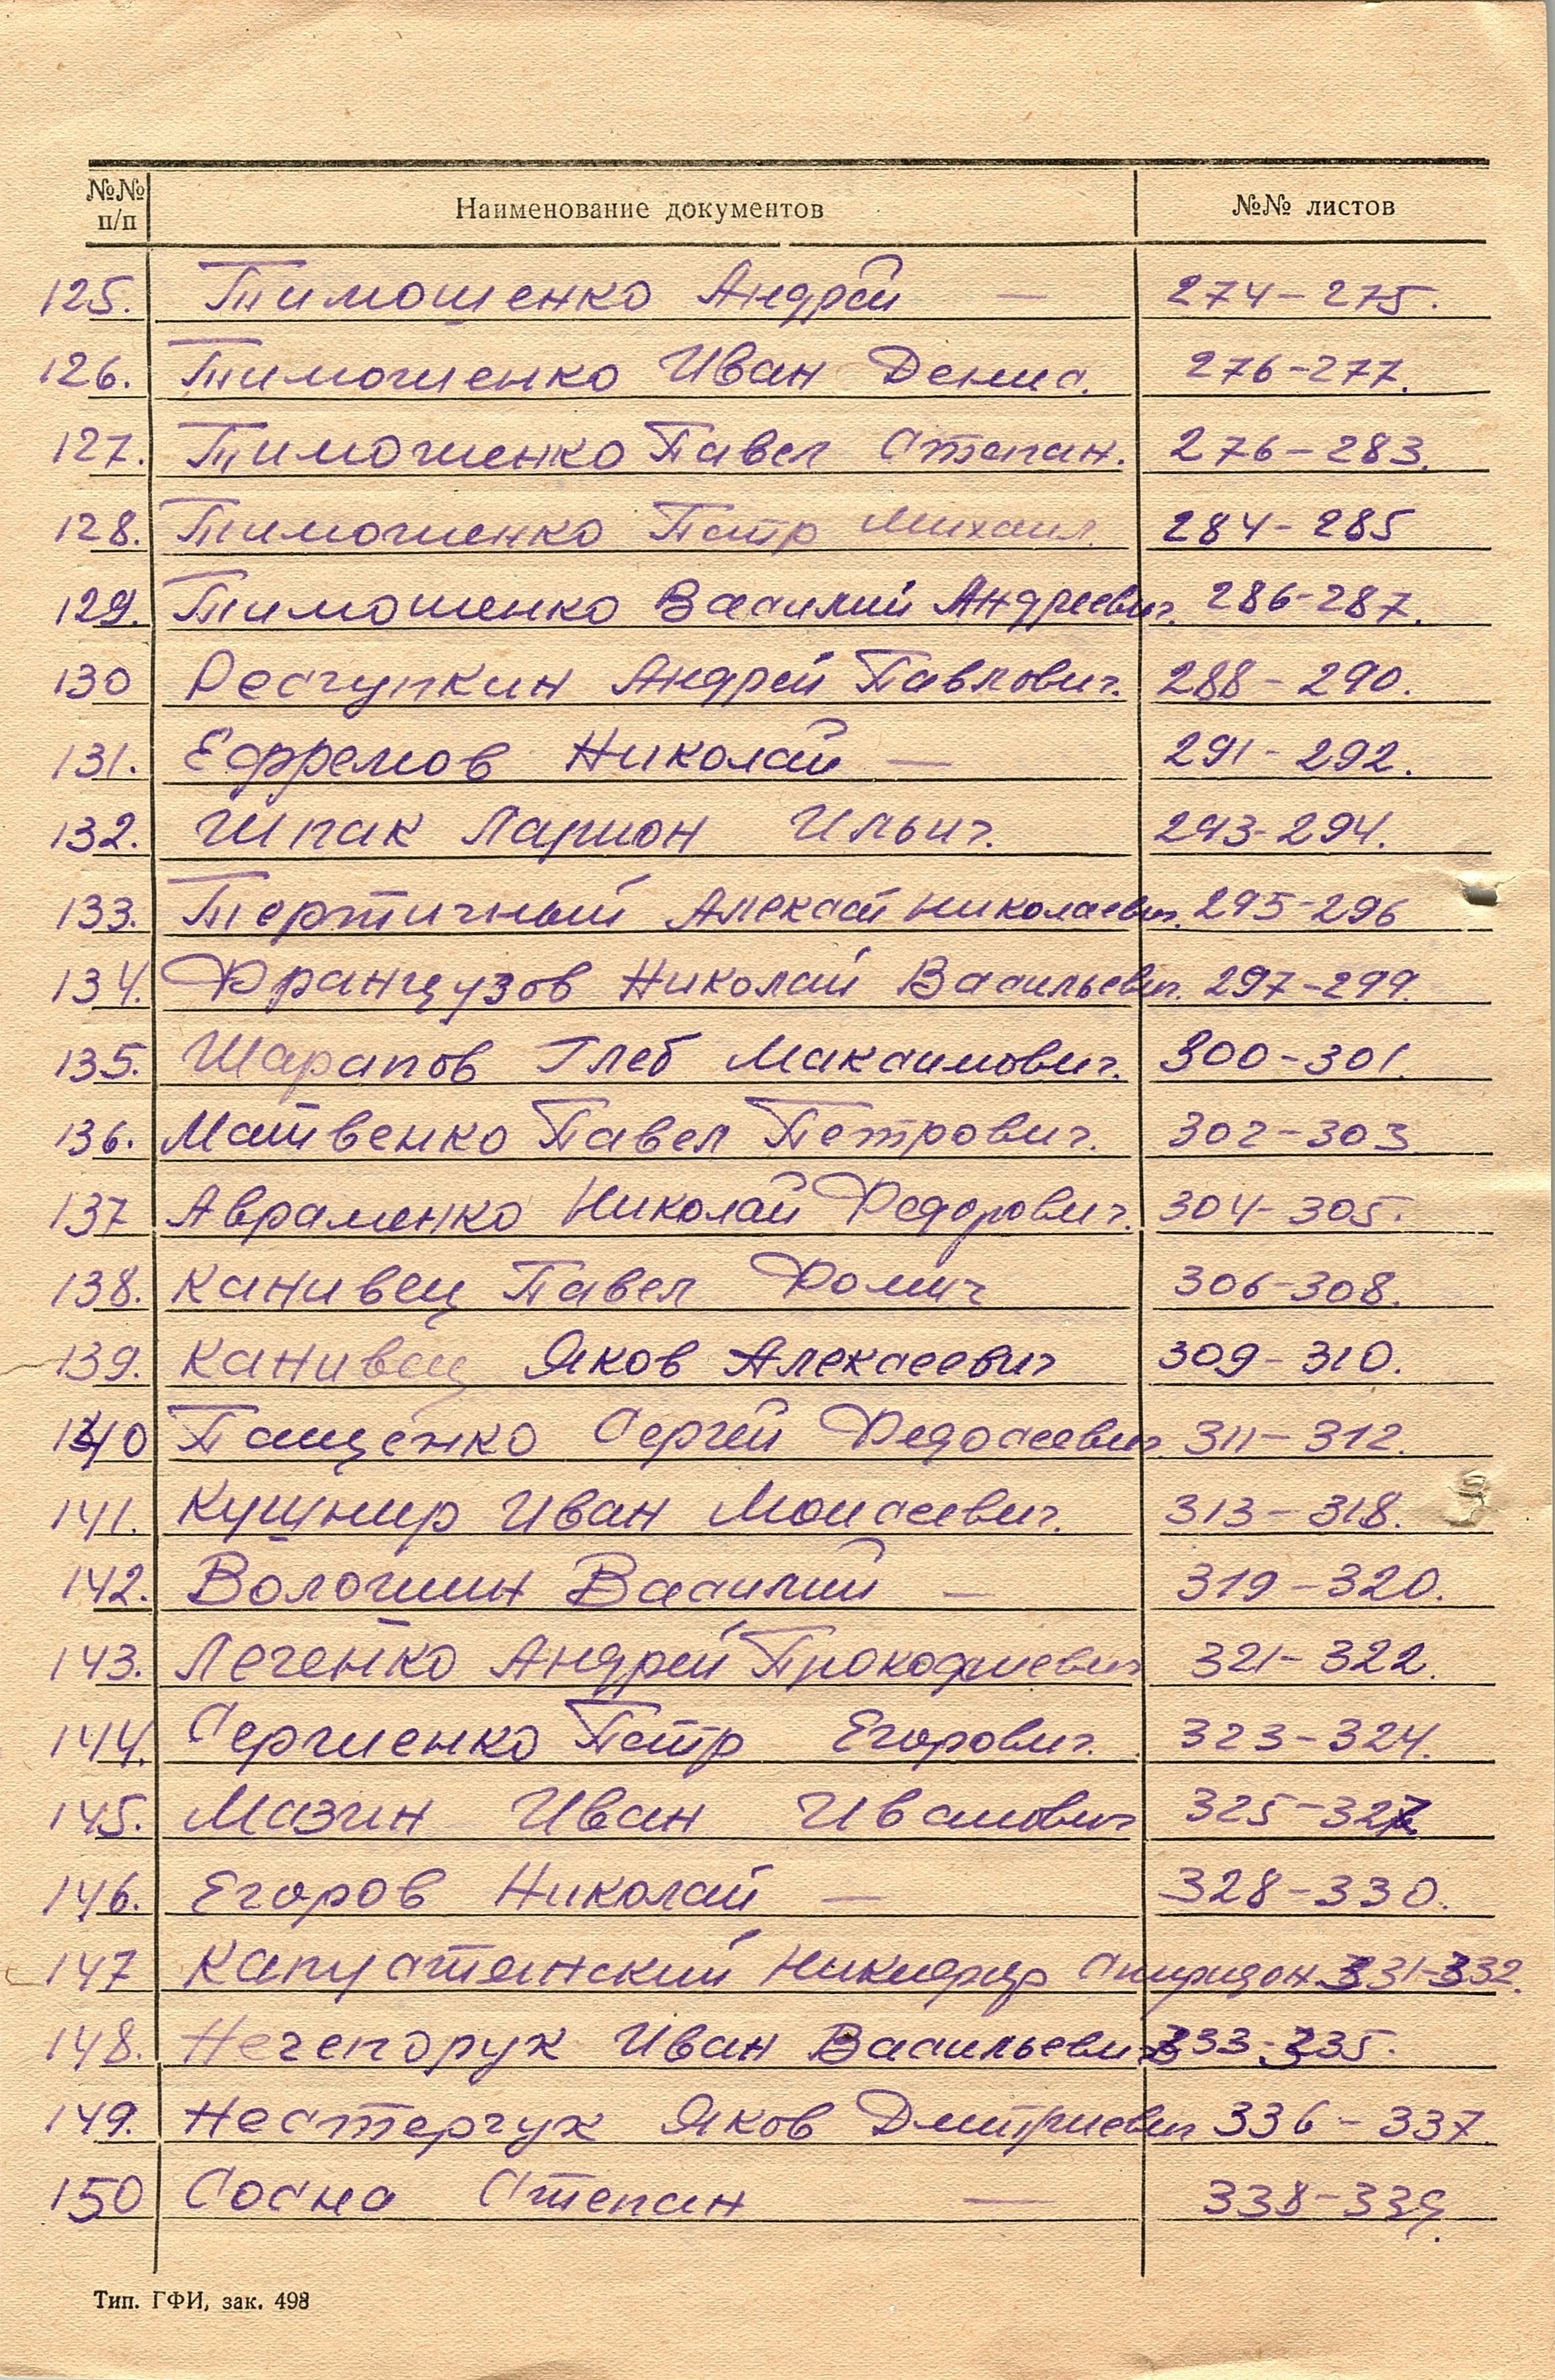 №№ п/п Наименование документов №№ листов
125. Тимошенко Андрей — 274-275.
126. Тимошенко Иван Денис. 276-277.
127. Тимошенко Павел Степан. 276-283.
128. Тимошенко Петр Михаил. 284-285
129. Тимошенко Василий Андреевич. 286-287.
130 Андрей Павлович. 288-290.
131. Ефремов Николай — 291-292.
132. Шпак Ларион Ильич. 293-294.
133. Тертичный Алексей Николаевич. 295-296
134. Французов Николай Васильевич. 297-299.
135. Шарапов Глеб Максимович. 300-301.
136. Матвенко Павел Петрович. 302-303
137 Авраменко Николай Федорович. 304-305.
138. Канивец Павел Фомич 306-308.
139. Канивец Яков Алексеевич 309-310.
140 Пащенко Сергей Федосеевич 311-312.
141. Кушнир Иван Моисеевич. 313-318.
142. Волошин Василий — 319-320.
143. Леченко Андрей Прокофиевич 321-322.
144. Сергиенко Петр Егорович. 323-324.
145. Мазин Иван Иванович 325-327.
146. Егоров Николай — 328-330.
147 Капустянский Никифор Спиридон. 331-332.
148. Нечепорук Иван Васильевич 333-335.
149. Нестерчук Яков Дмитриевич 336-337.
150 Сосна Степан — 338-339.
Тип. ГФИ, зак. 498